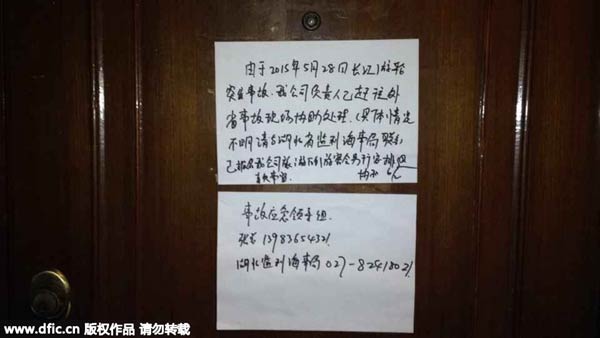 由于2015年5月28日长江游轮
突发事故.我公司负责人已赶往外
省事故现场协助处理.(具体情况
不明请与湖北省监利海事局联系)
已报名我公司旅游
事故应急领导组.
张 1398365432
湖北监利海事局027-8241802
www.dfic.cn 版权作品 请勿转载